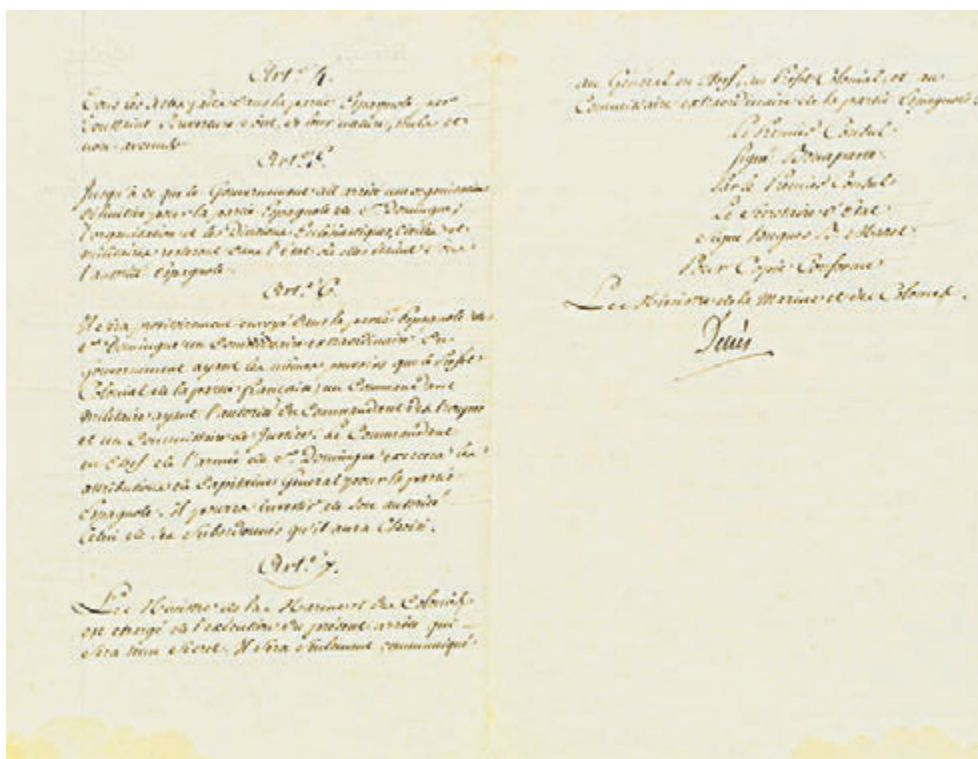 Art.e 4.
Tous les actes faits dans la partie Espagnole par
Toussaint Louverture sont, de leur nature, nuls et
non-avenus.
Art.e 5.
Jusqu'à ce que le Gouvernement ait arrêté une organisation
définitive pour la partie Espagnole de St. Domingue,
l'organisation et les Divisions Ecclésiastiques, Civiles et
militaires resteront dans l'état où elles étaient sous
l'autorité Espagnole.
Art.e 6.
Il sera envoyé dans la partie Espagnole de
St. Domingue un Commissaire extraordinaire du
Gouvernement ayant les mêmes pouvoirs que le Préfet
Colonial de la partie française; un Commandant
militaire ayant l'autorité du Commandant des troupes
et un Commissaire de Justice. Le Commandant
en Chef de l'armée de St. Domingue exercera les
attributions de Capitaine Général pour la partie
Espagnole. il pourra investir de son autorité
Celui de ses Subordonnés qu'il aura Choisi.
Art.e 7.
Le Ministre de la Marine et des Colonies
est chargé de l'exécution du présent arrêté qui
sera tenu Secret. Il sera seulement communiqué
au Général en Chef, au Préfet Colonial, et au
Commissaire extraordinaire de la partie Espagnole.
Le Premier Consul
Signé Bonaparte.
Par le Premier Consul
Le Secrétaire d'état
Signé hugues B. Maret
Pour Copie Conforme
Le Ministre de la Marine et des Colonies.
Decrès